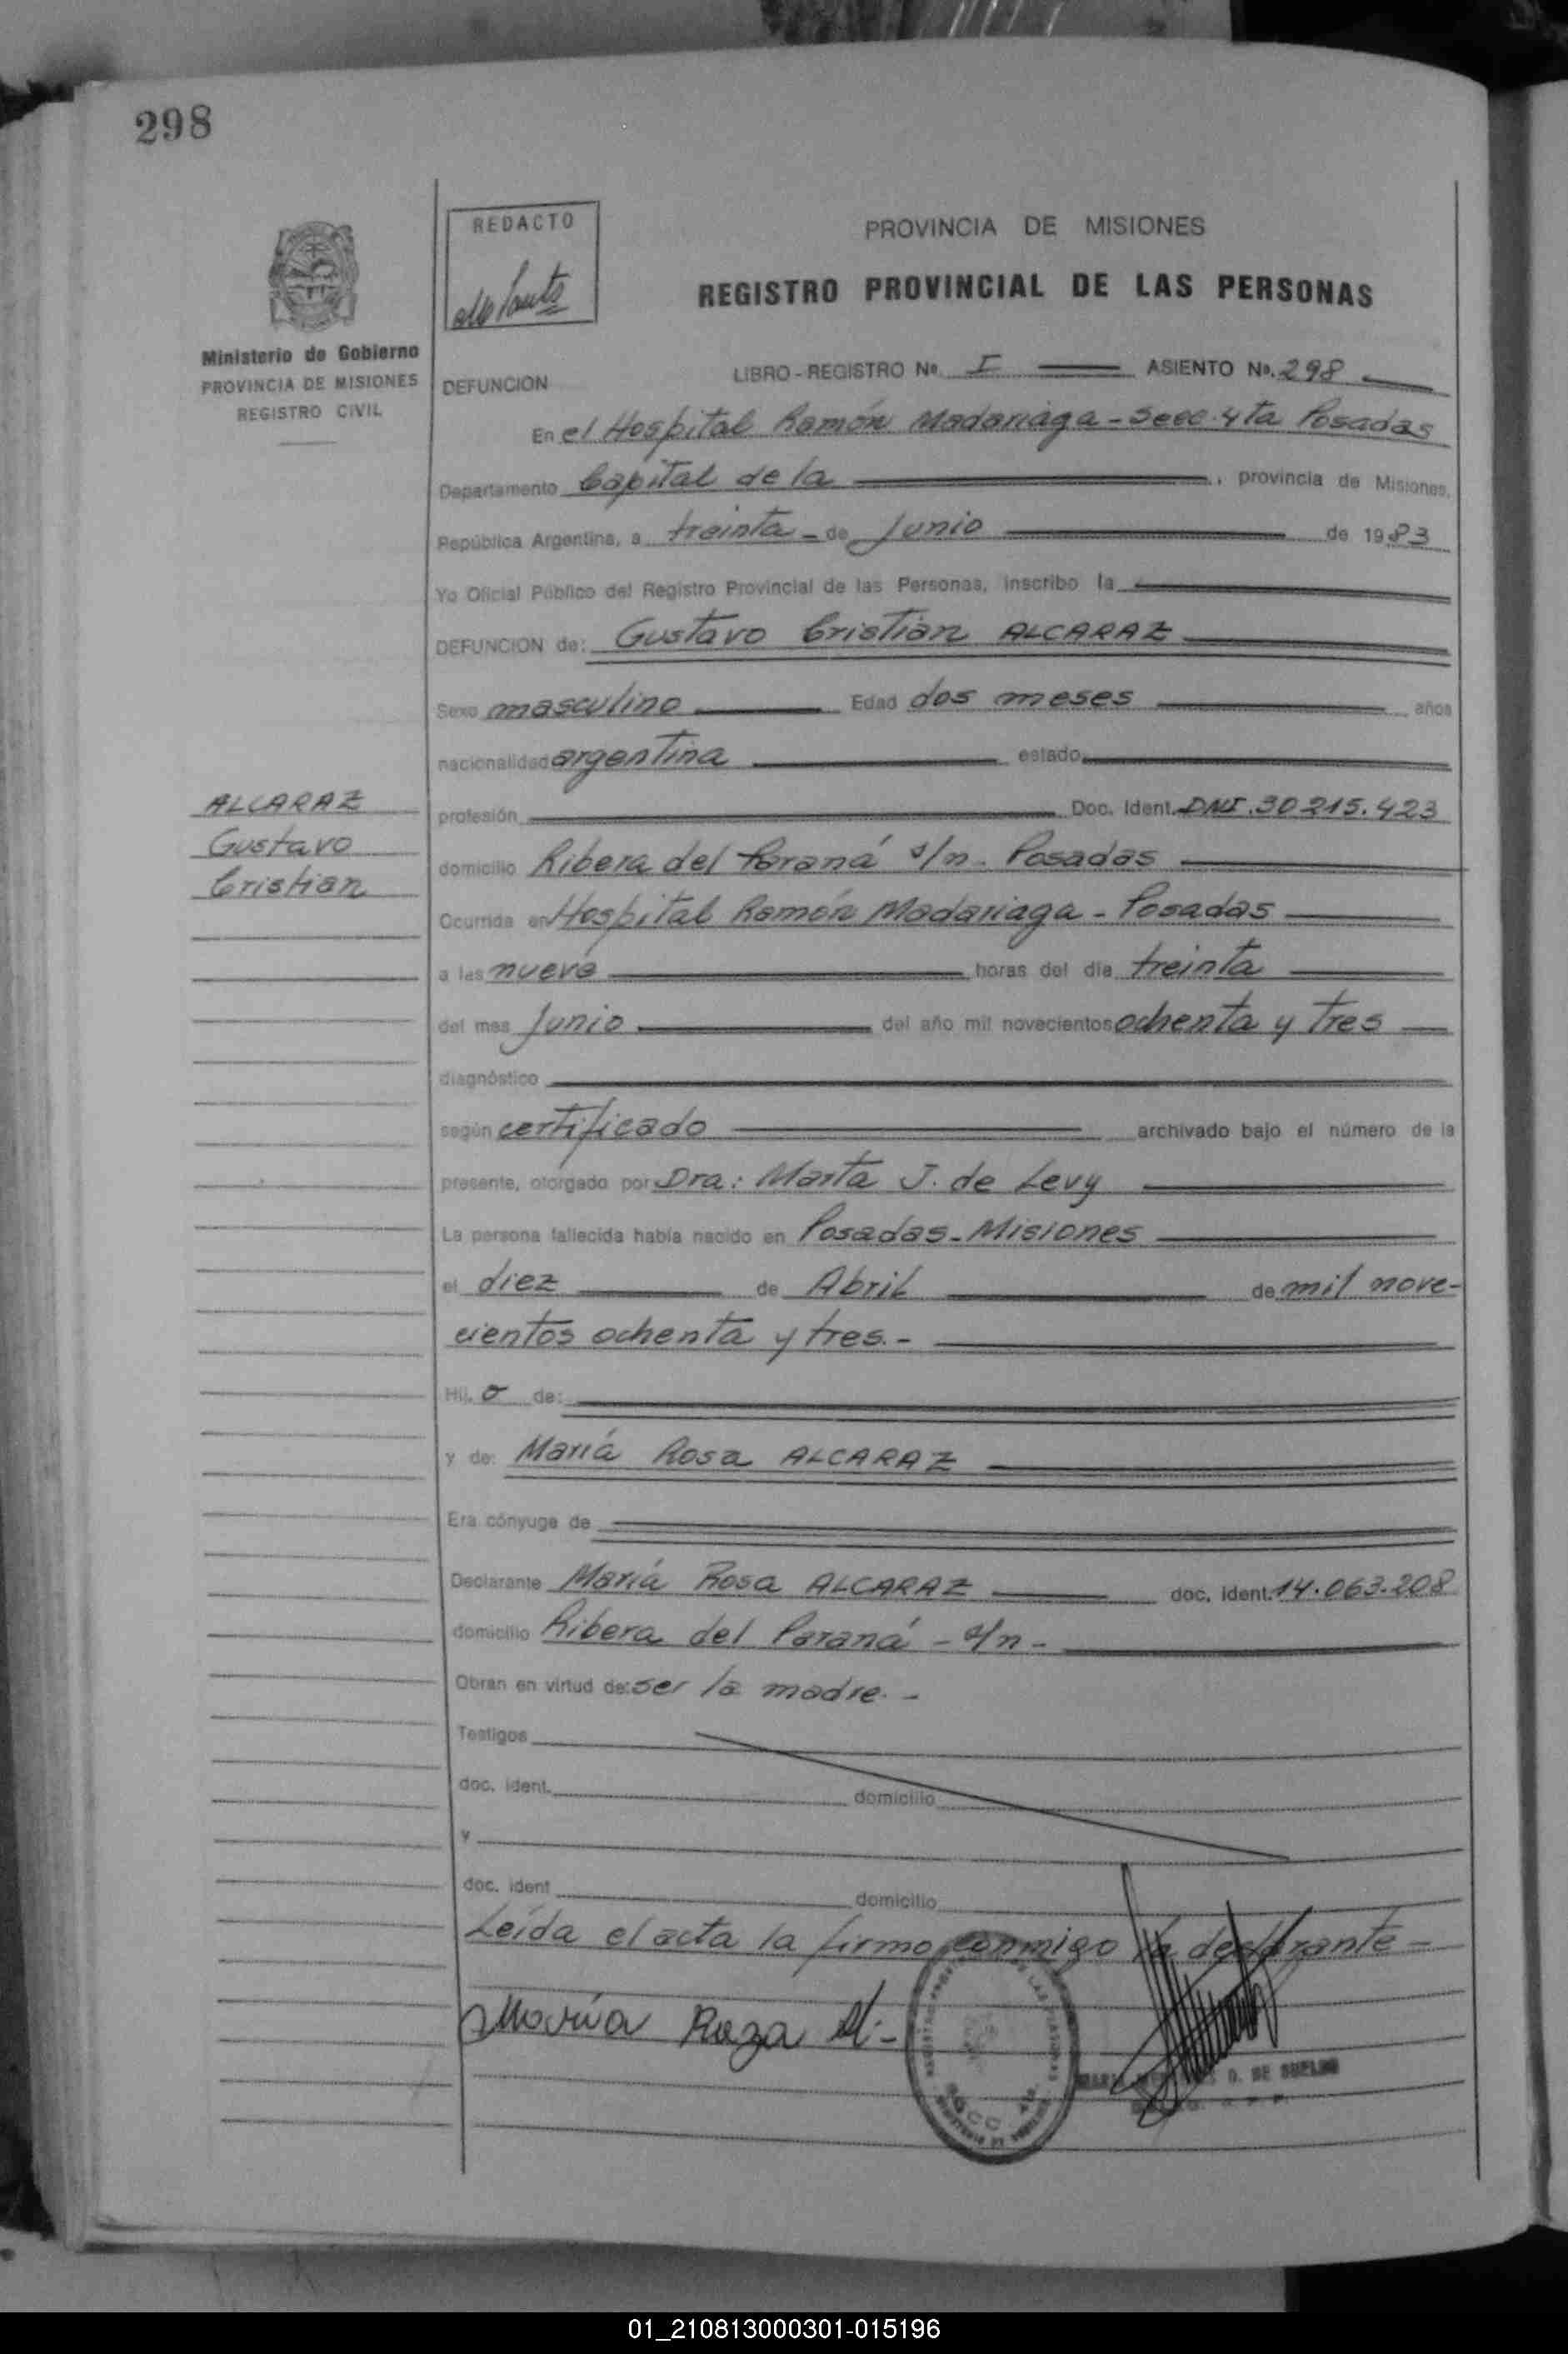 298
REDACTO
PROVINCIA DE MISIONES
REGISTRO PROVINCIAL DE LAS PERSONAS
Ministerio de Gobierno
PROVINCIA DE MISIONES
REGISTRO CIVIL
DEFUNCION
LIBRO - REGISTRO No. I ASIENTO No. 298
En el Hospital Ramón Madariaga - Secc. 4ta Posadas
Departamento Capital de la, provincia de Misiones,
República Argentina, a treinta - de Junio de 1983
Yo Oficial Público del Registro Provincial de las Personas, inscribo la
DEFUNCION de: Gustavo Cristian ALCARAZ
Sexo masculino Edad dos meses años
nacionalidad argentina estado
ALCARAZ
Gustavo
Cristian
profesión Doc. Ident. DNI. 30215.423
domicilio Ribera del Paraná s/n - Posadas
Ocurrida en Hospital Ramón Madariaga - Posadas
a las nueve horas del día treinta
del mes Junio del año mil novecientos ochenta y tres
diagnóstico
según certificado archivado bajo el número de la
presente, otorgado por Dra: Marta J. de Levy
La persona fallecida había nacido en Posadas - Misiones
el diez de Abril de mil nove-
cientos ochenta y tres. -
Hij. o de:
y de: María Rosa ALCARAZ
Era cónyuge de
Declarante María Rosa ALCARAZ doc. ident. 14.063.208
domicilio Ribera del Paraná - s/n -
Obran en virtud de: ser la madre. -
Testigos
doc. ident. domicilio
y
doc. ident domicilio
Leída el acta la firmo conmigo la declarante -
María Roza Al. -
D. DE SUELDO
01_210813000301-015196